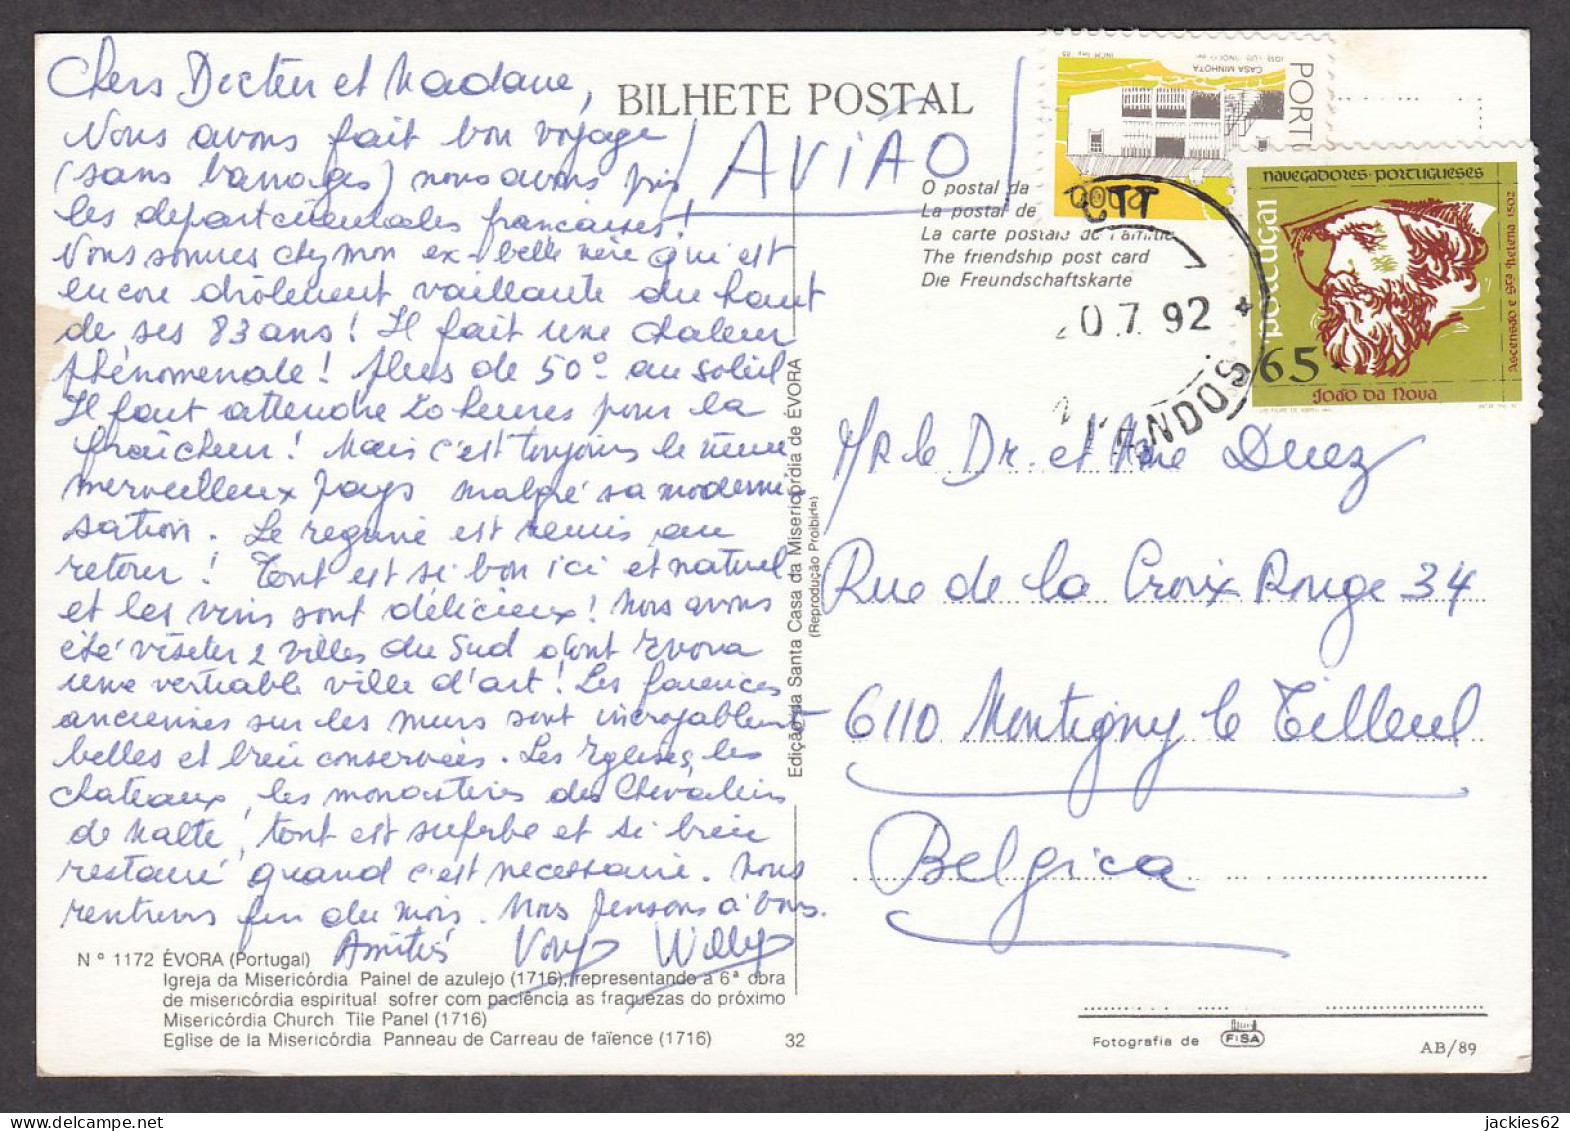 Chers Docteur et Madame,
Nous avons fait bon voyage
(sans barrages) nous avons pris
les départementales françaises!
Nous sommes chez mon ex-belle mère qui est
encore drôlement vaillante du haut
de ses 83 ans! Il fait une chaleur
phénomenale! plus de 50° au soleil
Il faut attendre 20 heures pour la
fraîcheur! Mais c'est toujours le même
merveilleux pays malgré sa moderni-
sation. Le regime est remis au
retour! Tout est si bon ici et naturel
et les vins sont délicieux! Nous avons
été visiter 2 villes du Sud dont Evora
une veritable ville d'art! Les faiences
anciennes sur les murs sont incroyablement
belles et bien conservées. Les Eglises, les
chateaux, les monastères des Chevaliers
de Malte, tout est superbe et si bien
restauré quand c'est necessaire. Nous
rentrons fin du mois. Nous pensons à vous.
Amitiés Willy
Nº 1172 ÉVORA (Portugal)
Igreja da Misericórdia Painel de azulejo (1716), representando a 6ª obra
de misericórdia espiritual sofrer com paciência as fraquezas do próximo
Misericórdia Church Tile Panel (1716)
Eglise de la Misericórdia Panneau de Carreau de faïence (1716)
32
Edição da Santa Casa da Misericórdia de ÉVORA
(Reprodução Proibida)
BILHETE POSTAL
AVIÃO
O postal da
La postal de
La carte postale de l'amitié
The friendship post card
Die Freundschaftskarte
PORT
CASA MINHOTA
0.7.92
ANDOS
NAVEGADORES·PORTUGUESES
PORTUGAL
Ascensão e Stª Helena 1502
65
JOÃO DA NOVA
Mr le Dr. et Mme Duez
Rue de la Croix Rouge 34
6110 Montigny le Tilleul
Belgica
Fotografia de FISA
AB/89
jackies62